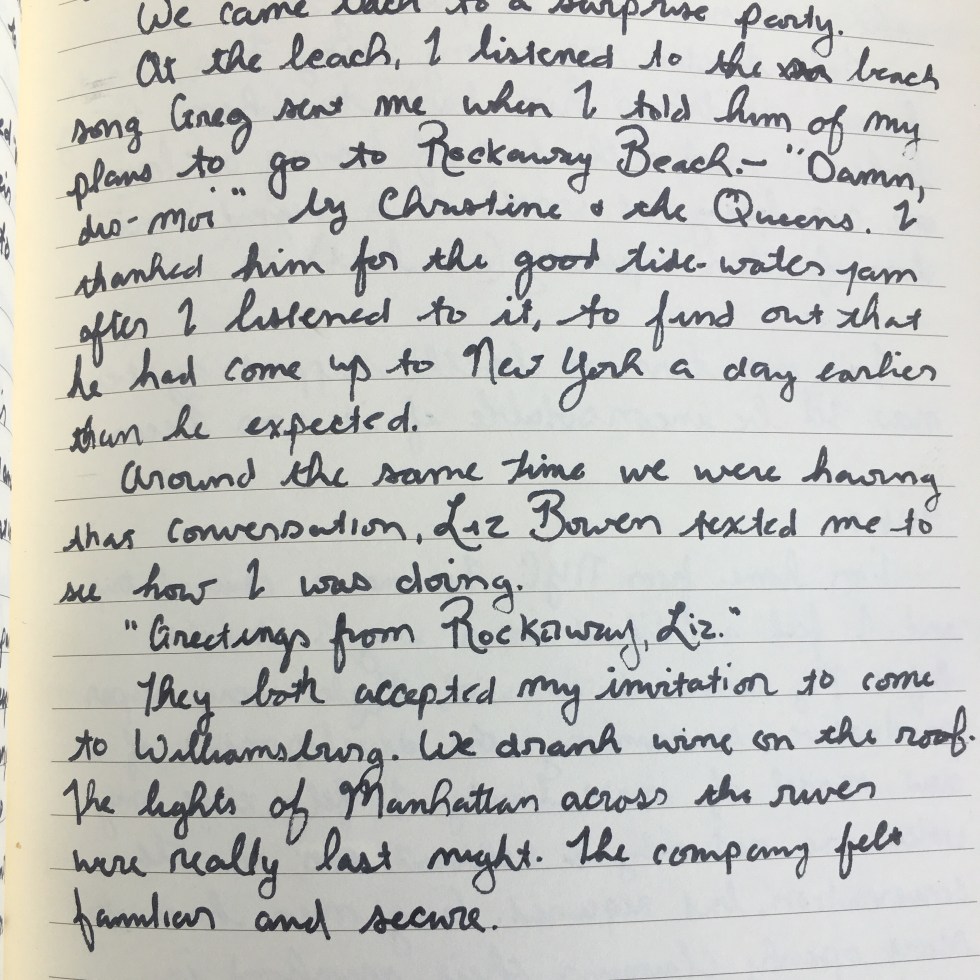 We came back to a surprise party.
At the beach, I listened to the beach
song Greg sent me when I told him of my
plans to go to Rockaway Beach - "Damn,
dis-moi" by Christine & the Queens. I
thanked him for the good tide-water jam
after I listened to it, to find out that
he had come up to New York a day earlier
than he expected.
Around the same time we were having
that conversation, Liz Bowen texted me to
see how I was doing.
"Greetings from Rockaway, Liz."
They both accepted my invitation to come
to Williamsburg. We drank wine on the roof.
The lights of Manhattan across the river
were really last night. The company felt
familiar and secure.